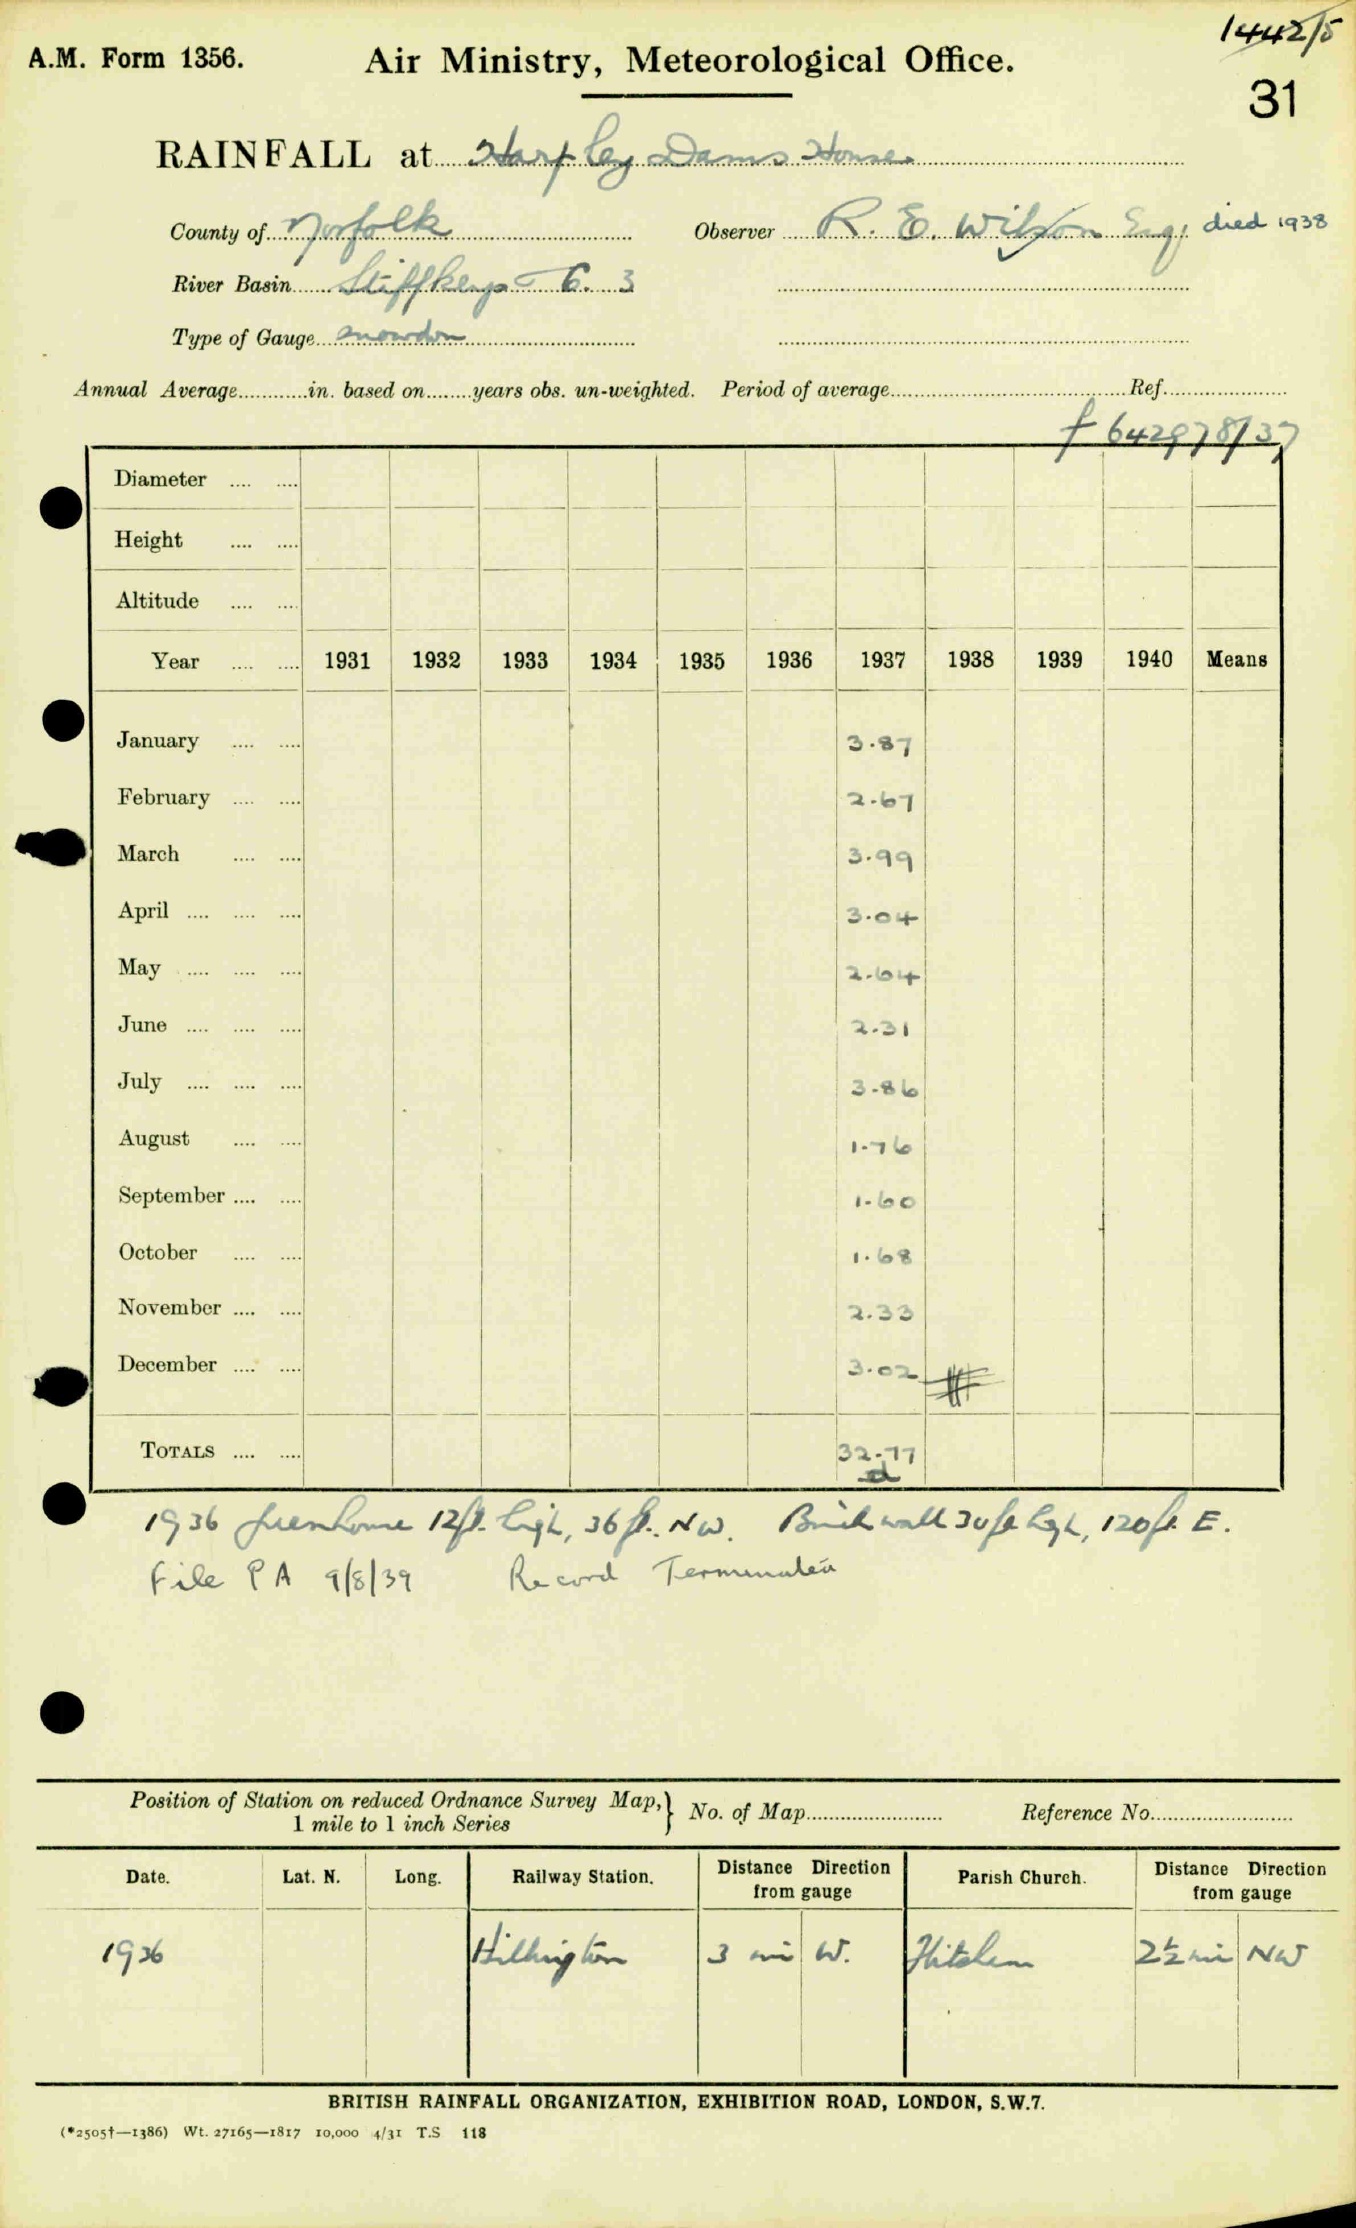 1442/5
A.M. Form 1356.
Air Ministry, Meteorological Office.
31
RAINFALL at Harpley Dams House
County of Norfolk Observer R. E. Wilson Esq, died 1938
River Basin Stiffkey 6. 3
Type of Gauge Snowdon
Annual Average............in. based on........years obs. un-weighted. Period of average............ Ref............
f 642978/37
Diameter .... ....
Height .... ....
Altitude .... ....
Year .... .... 1931 1932 1933 1934 1935 1936 1937 1938 1939 1940 Means
January .... .... 3.87
February .... .... 2.67
March .... .... 3.99
April .... .... .... 3.04
May .... .... .... 2.64
June .... .... .... 2.31
July .... .... .... 3.86
August .... .... 1.76
September .... .... 1.60
October .... .... 1.68
November .... .... 2.33
December .... .... 3.02
TOTALS .... .... 32.77
d
1936 Greenhouse 12ft. high, 36 ft. NW. Brick wall 30ft high, 120ft E.
File P A 9/8/39 Record Terminated
Position of Station on reduced Ordnance Survey Map, } No. of Map............ Reference No............
1 mile to 1 inch Series
Date. Lat. N. Long. Railway Station. Distance Direction from gauge Parish Church. Distance Direction from gauge
1936 Hillington 3 mi W. Flitcham 2½ mi NW
BRITISH RAINFALL ORGANIZATION, EXHIBITION ROAD, LONDON, S.W.7.
(*2505†—1386) Wt. 27165—1817 10,000 4/31 T.S 118